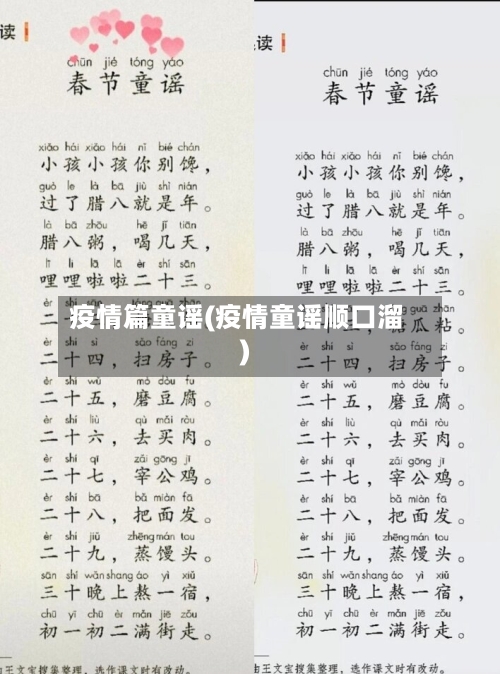 读
chūn jié tóng yáo
春节童谣
xiǎo hái xiǎo hái nǐ bié chán
小孩小孩你别馋，
guò le là bā jiù shì nián
过了腊八就是年。
là bā zhōu hē jǐ tiān
腊八粥，喝几天，
lī lī lā lā èr shí sān
哩哩啦啦二十三。
èr shí sì sǎo fáng zi
二十四，扫房子。
èr shí wǔ mò dòu fu
二十五，磨豆腐。
èr shí liù qù mǎi ròu
二十六，去买肉。
èr shí qī zǎi gōng jī
二十七，宰公鸡。
èr shí bā bǎ miàn fā
二十八，把面发。
èr shí jiǔ zhēng mán tou
二十九，蒸馒头。
sān shí wǎn shang áo yì xiǔ
三十晚上熬一宿，
chū yī chū èr mǎn jiē zǒu
初一初二满街走。
王文宝搜集整理，选作课文时有改动。
读
chūn jié tóng yáo
春节童谣
xiǎo hái xiǎo hái nǐ bié chán
小孩小孩你别馋，
guò le là bā jiù shì nián
过了腊八就是年。
là bā zhōu hē jǐ tiān
腊八粥，喝几天，
lī lī lā lā èr shí sān
哩哩啦啦二十三。
瓜粘。
èr shí sì sǎo fáng zi
二十四，扫房子。
èr shí wǔ mò dòu fu
二十五，磨豆腐。
èr shí liù qù mǎi ròu
二十六，去买肉。
èr shí qī zǎi gōng jī
二十七，宰公鸡。
èr shí bā bǎ miàn fā
二十八，把面发。
èr shí jiǔ zhēng mán tou
二十九，蒸馒头。
sān shí wǎn shang áo yì xiǔ
三十晚上熬一宿，
chū yī chū èr mǎn jiē zǒu
初一初二满街走。
由王文宝搜集整理，选作课文时有改动。
疫情篇童谣(疫情童谣顺口溜
)